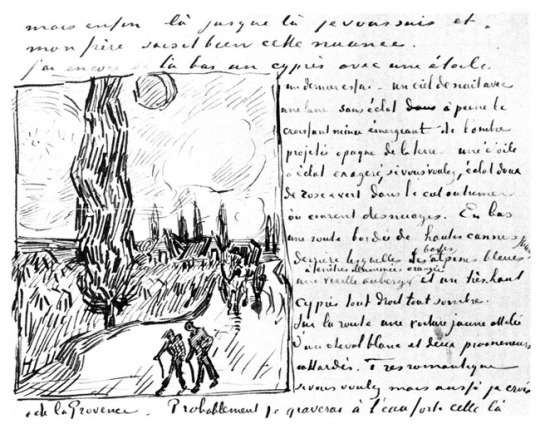 mais enfin là jusque là je vous suis et
mon frère saisit bien cette nuance.
j'ai encore de là bas un cyprès avec une étoile
un dernier essai – un ciel de nuit avec
une lune sans éclat à peine le
croissant mince émergeant de l'ombre
projetée opaque de la terre – une étoile
à éclat exagéré, si vous voulez, éclat doux
de rose & vert dans le ciel outremer
où courent des nuages. En bas
une route bordée de hautes cannes jaunes
derrière lesquelles les basses alpines bleues
une vieille auberge à fenêtres illuminées orangée et un très haut
cyprès tout droit tout sombre.
Sur la route une voiture jaune attelée
d'un cheval blanc et deux promeneurs
attardés. Très romantique
si vous voulez mais aussi je crois
de la Provence. Probablement je graverai à l'eau forte celle là